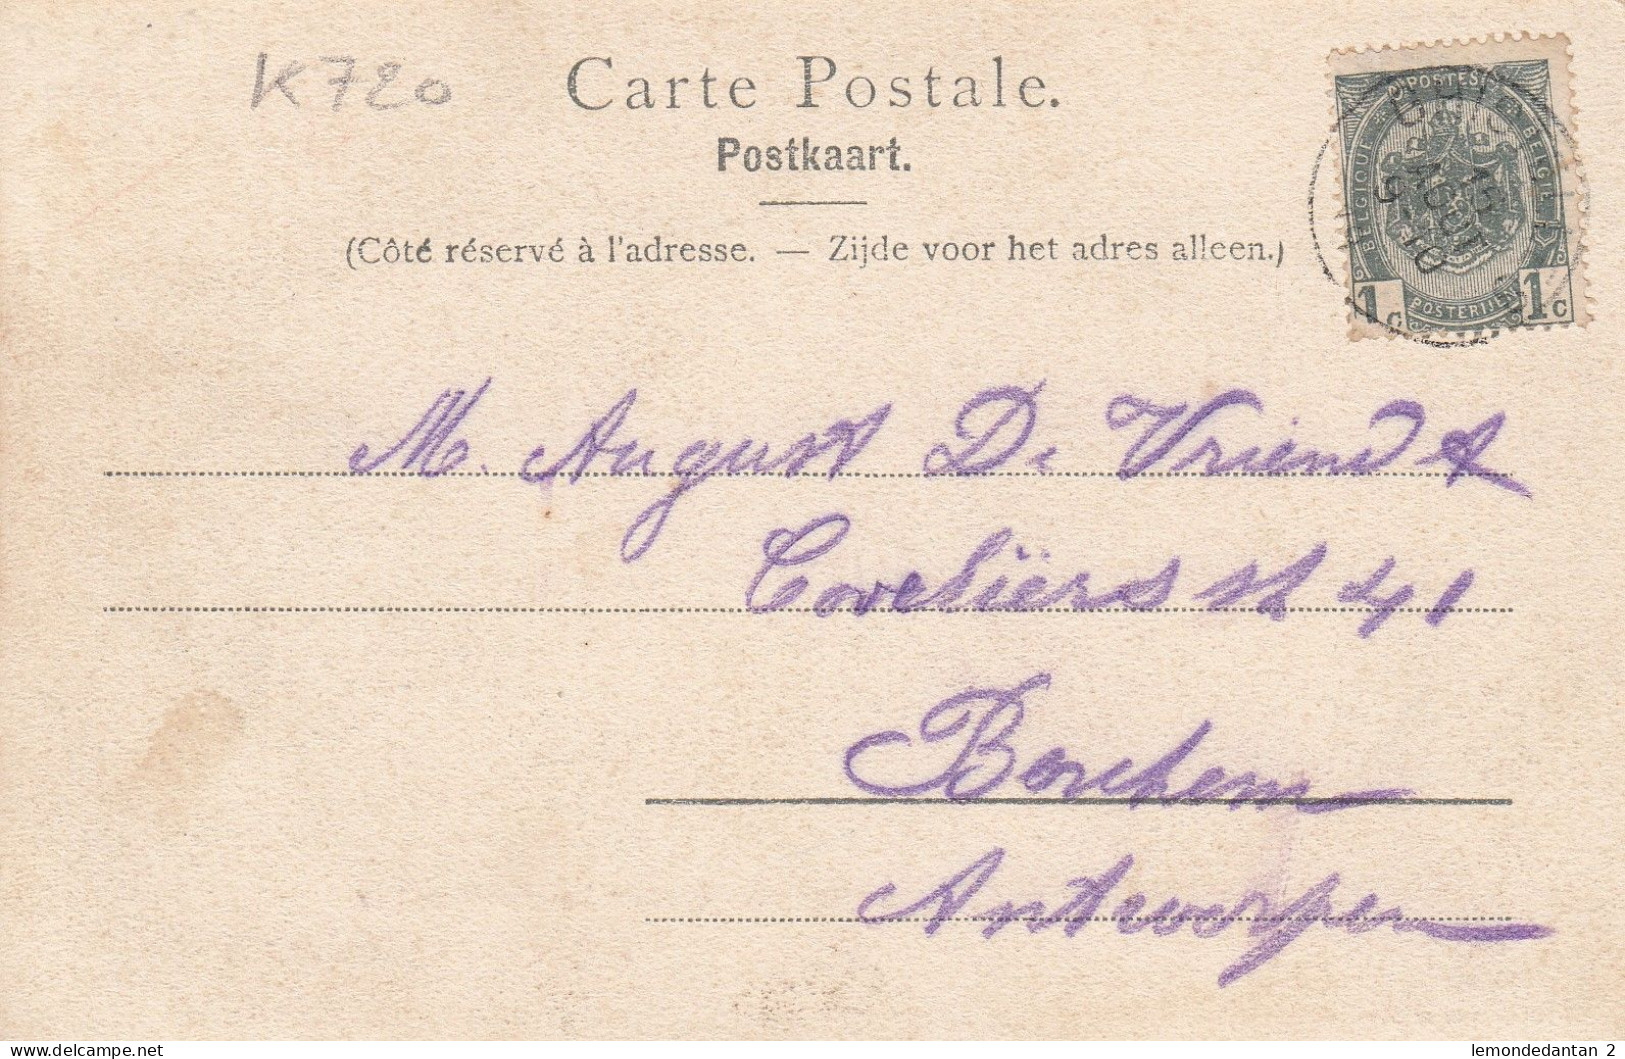 K720
Carte Postale.
Postkaart.
(Côté réservé à l'adresse. — Zijde voor het adres alleen.)
POSTES
BELGIQUE
BELGIË
1c
POSTERIJEN
1c
AOUT
M. August De Vriendt
Coveliërs st 41
Borchem
Antwerpen
delcampe.net
lemondedantan 2